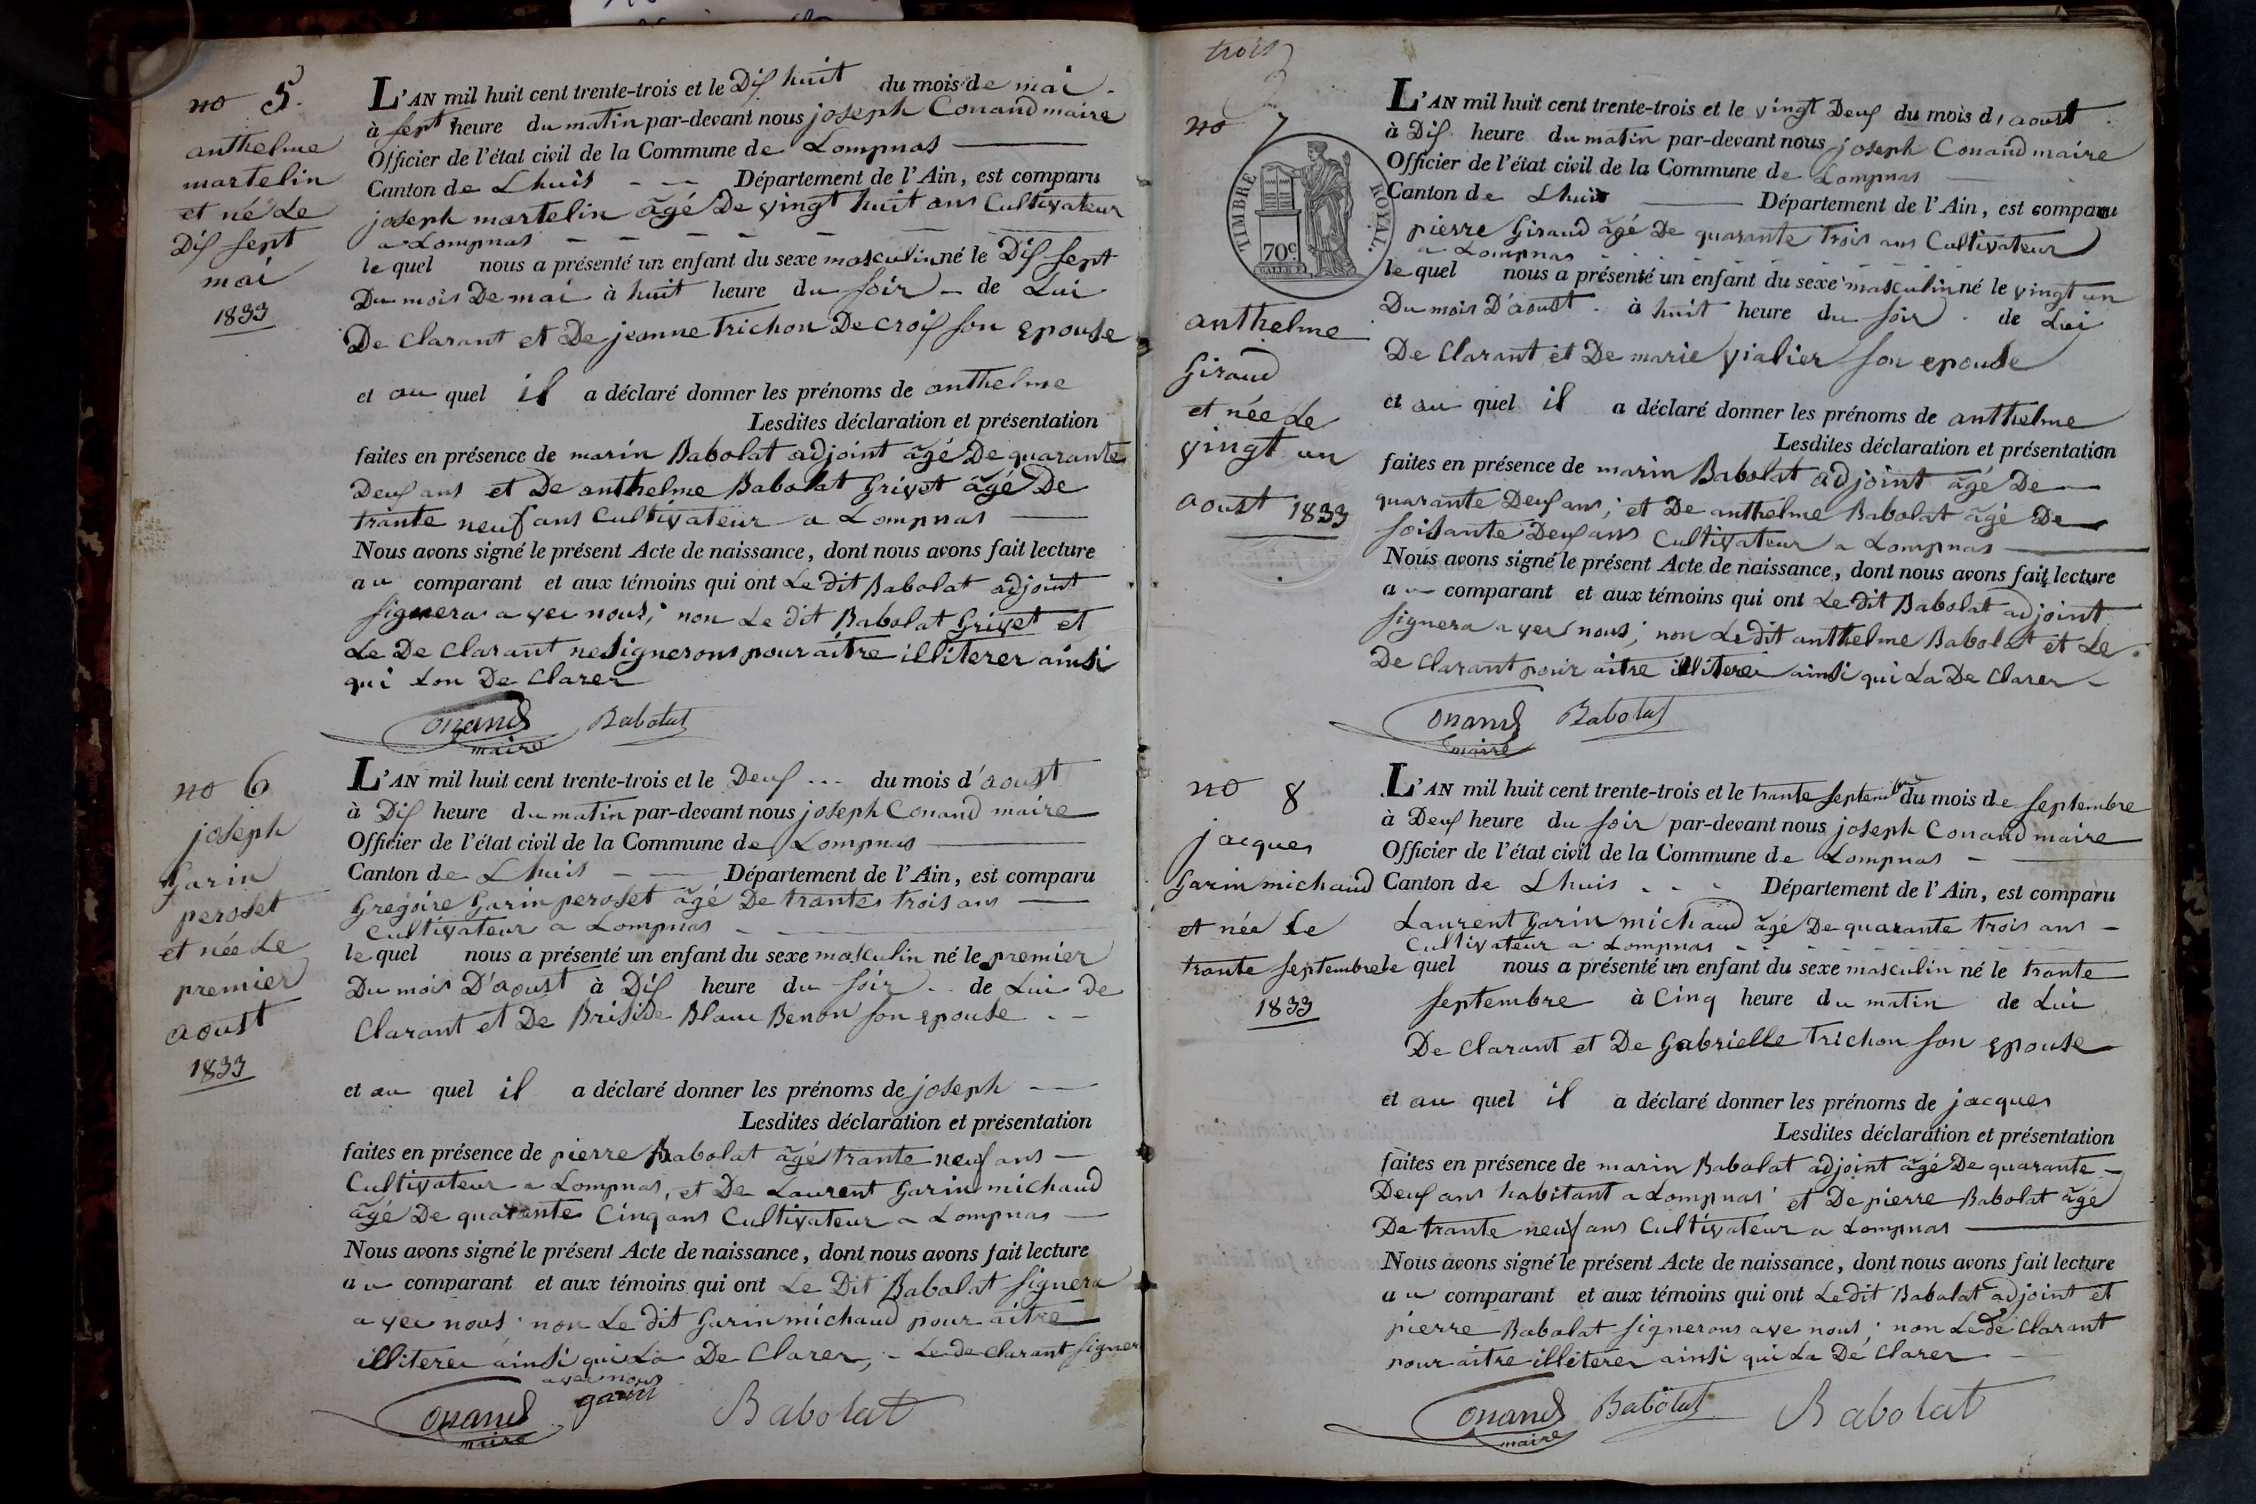 no 5.
anthelme
martelin
et né Le
Dix sept
mai
1833
L'AN mil huit cent trente-trois et le Dix huit du mois de mai
à sept heure du matin par-devant nous joseph Conand maire
Officier de l'état civil de la Commune de Lompnas
Canton de Lhuis Département de l'Ain, est comparu
joseph martelin âgé De vingt huit ans Cultivateur
a Lompnas
lequel nous a présenté un enfant du sexe masculin né le Dix sept
Du mois De mai à huit heure du soir de Lui
De Clarant et De jeanne Trichon Decroix son epouse
et au quel il a déclaré donner les prénoms de anthelme
Lesdites déclaration et présentation
faites en présence de marin Babolat adjoint âgé De quarante
Deux ans et De anthelme Babolat Grivet âgé De
trante neuf ans Cultivateur a Lompnas
Nous avons signé le présent Acte de naissance, dont nous avons fait lecture
au comparant et aux témoins qui ont Le dit Babolat adjoint
signera avec nous; non Le dit Babolat Grivet et
Le De Clarant ne signerons pour aitre illiterer ainsi
qui Lon De Clarer
Conand maire Babolat
no 6
joseph
Garin
peroset
et née Le
premier
aoust
1833
L'AN mil huit cent trente-trois et le Deux du mois d'aoust
à Dix heure du matin par-devant nous joseph Conand maire
Officier de l'état civil de la Commune de Lompnas
Canton de Lhuis Département de l'Ain, est comparu
Gregoire Garin peroset âgé De trantes trois ans
Cultivateur a Lompnas
lequel nous a présenté un enfant du sexe masculin né le premier
Du mois D'aoust à Dix heure du soir de Lui de
Clarant et De Briside Blanc Benon son epouse
et au quel il a déclaré donner les prénoms de joseph
Lesdites déclaration et présentation
faites en présence de pierre Babolat âgé trante neuf ans
Cultivateur a Lompnas, et De Laurent Garin michaud
âgé De quarante Cinq ans Cultivateur a Lompnas
Nous avons signé le présent Acte de naissance, dont nous avons fait lecture
au comparant et aux témoins qui ont Le Dit Babolat signera
avec nous non Le dit Garin michaud pour aitre
illiterer ainsi qui La De Clarer, Le de clarant signer
avec nous
Conand maire garin Babolat
trois
no 7
TIMBRE ROYAL.
70c
anthelme
Giraud
et née Le
vingt un
aoust 1833
L'AN mil huit cent trente-trois et le vingt Deux du mois d'aoust
à Dix heure du matin par-devant nous joseph Conand maire
Officier de l'état civil de la Commune de Lompnas
Canton de Lhuis Département de l'Ain, est comparu
pierre Giraud âgé De quarante trois ans Cultivateur
a Lompnas
lequel nous a présenté un enfant du sexe masculin né le vingt un
Du mois D'aoust à huit heure du soir de Lui
De Clarant et De marie vialier son epouse
et au quel il a déclaré donner les prénoms de anthelme
Lesdites déclaration et présentation
faites en présence de marin Babolat adjoint âgé De
quarante Deux ans; et De anthelme Babolat âgé De
soisante Deux ans Cultivateur a Lompnas
Nous avons signé le présent Acte de naissance, dont nous avons fait lecture
au comparant et aux témoins qui ont Le dit Babolat adjoint
signera avec nous; non Le dit anthelme Babolat et Le
De Clarant pour aitre illiterer ainsi qui La De Clarer
Conand maire Babolat
no 8
jacques
Garin michaud
et née Le
trante septembre
1833
L'AN mil huit cent trente-trois et le trante septembre du mois de septembre
à Deux heure du soir par-devant nous joseph Conand maire
Officier de l'état civil de la Commune de Lompnas
Canton de Lhuis Département de l'Ain, est comparu
Laurent Garin michaud âgé De quarante trois ans
Cultivateur a Lompnas
le quel nous a présenté un enfant du sexe masculin né le trante
septembre à Cinq heure du matin de Lui
De Clarant et De Gabrielle Trichon son epouse
et au quel il a déclaré donner les prénoms de jacques
Lesdites déclaration et présentation
faites en présence de marin Babolat adjoint âgé De quarante
Deux ans habitant a Lompnas et De pierre Babolat âgé
De trante neuf ans Cultivateur a Lompnas
Nous avons signé le présent Acte de naissance, dont nous avons fait lecture
au comparant et aux témoins qui ont Le dit Babolat adjoint et
pierre Babolat signerons ave nous; non Le de Clarant
pour aitre illiterer ainsi qui La De Clarer
Conand maire Babolat Babolat